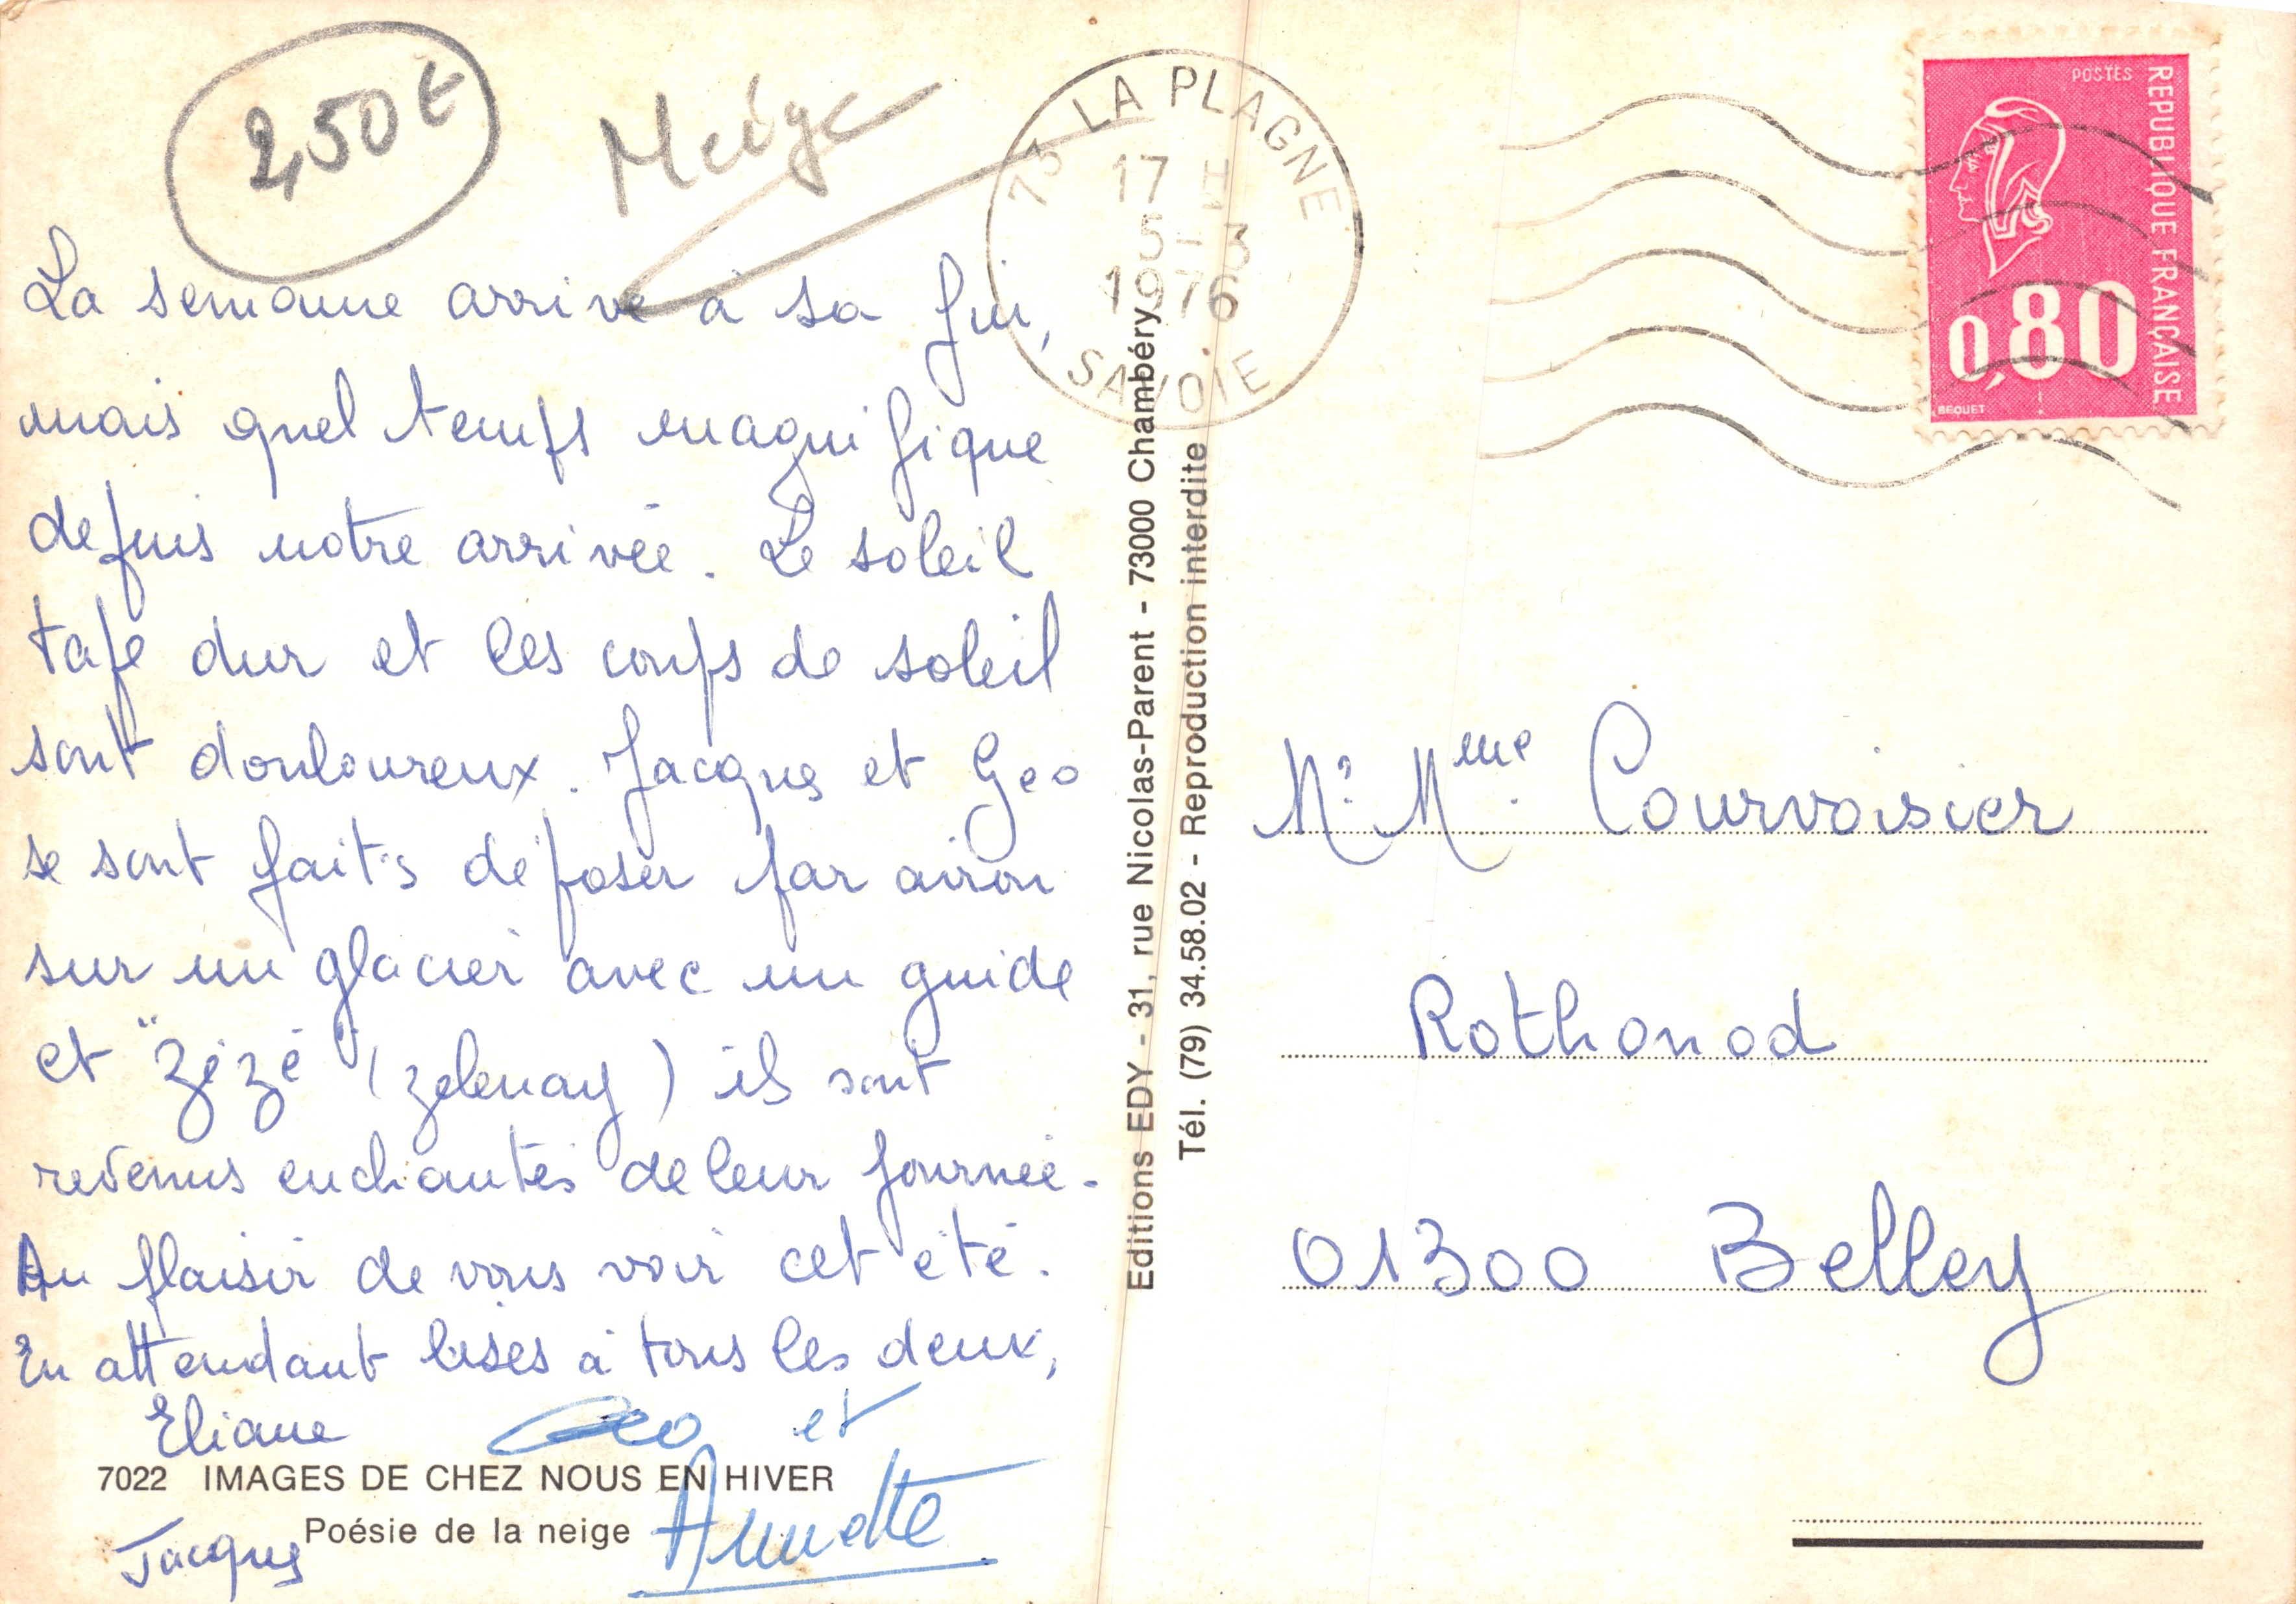 2,50 €
Neige
73 LA PLAGNE
17 H
5-3
1976
SAVOIE
POSTES
REPUBLIQUE FRANÇAISE
0,80
BEQUET
La semaine arrive à sa fin,
mais quel temps magnifique
depuis notre arrivée. Le soleil
tape dur et les coups de soleil
sont douloureux. Jacques et Geo
se sont faits déposer par avion
sur un glacier avec un guide
et "Zézé" (zelenay) ils sont
revenus enchantés de leur journée.
Au plaisir de vous voir cet été.
En attendant bises à tous les deux,
Eliane Geo et
Annette
Jacques
7022 IMAGES DE CHEZ NOUS EN HIVER
Poésie de la neige
Editions EDY - 31, rue Nicolas-Parent - 73000 Chambéry
Tél. (79) 34.58.02 - Reproduction interdite
Mr Mme Courvoisier
Rothonod
01300 Belley